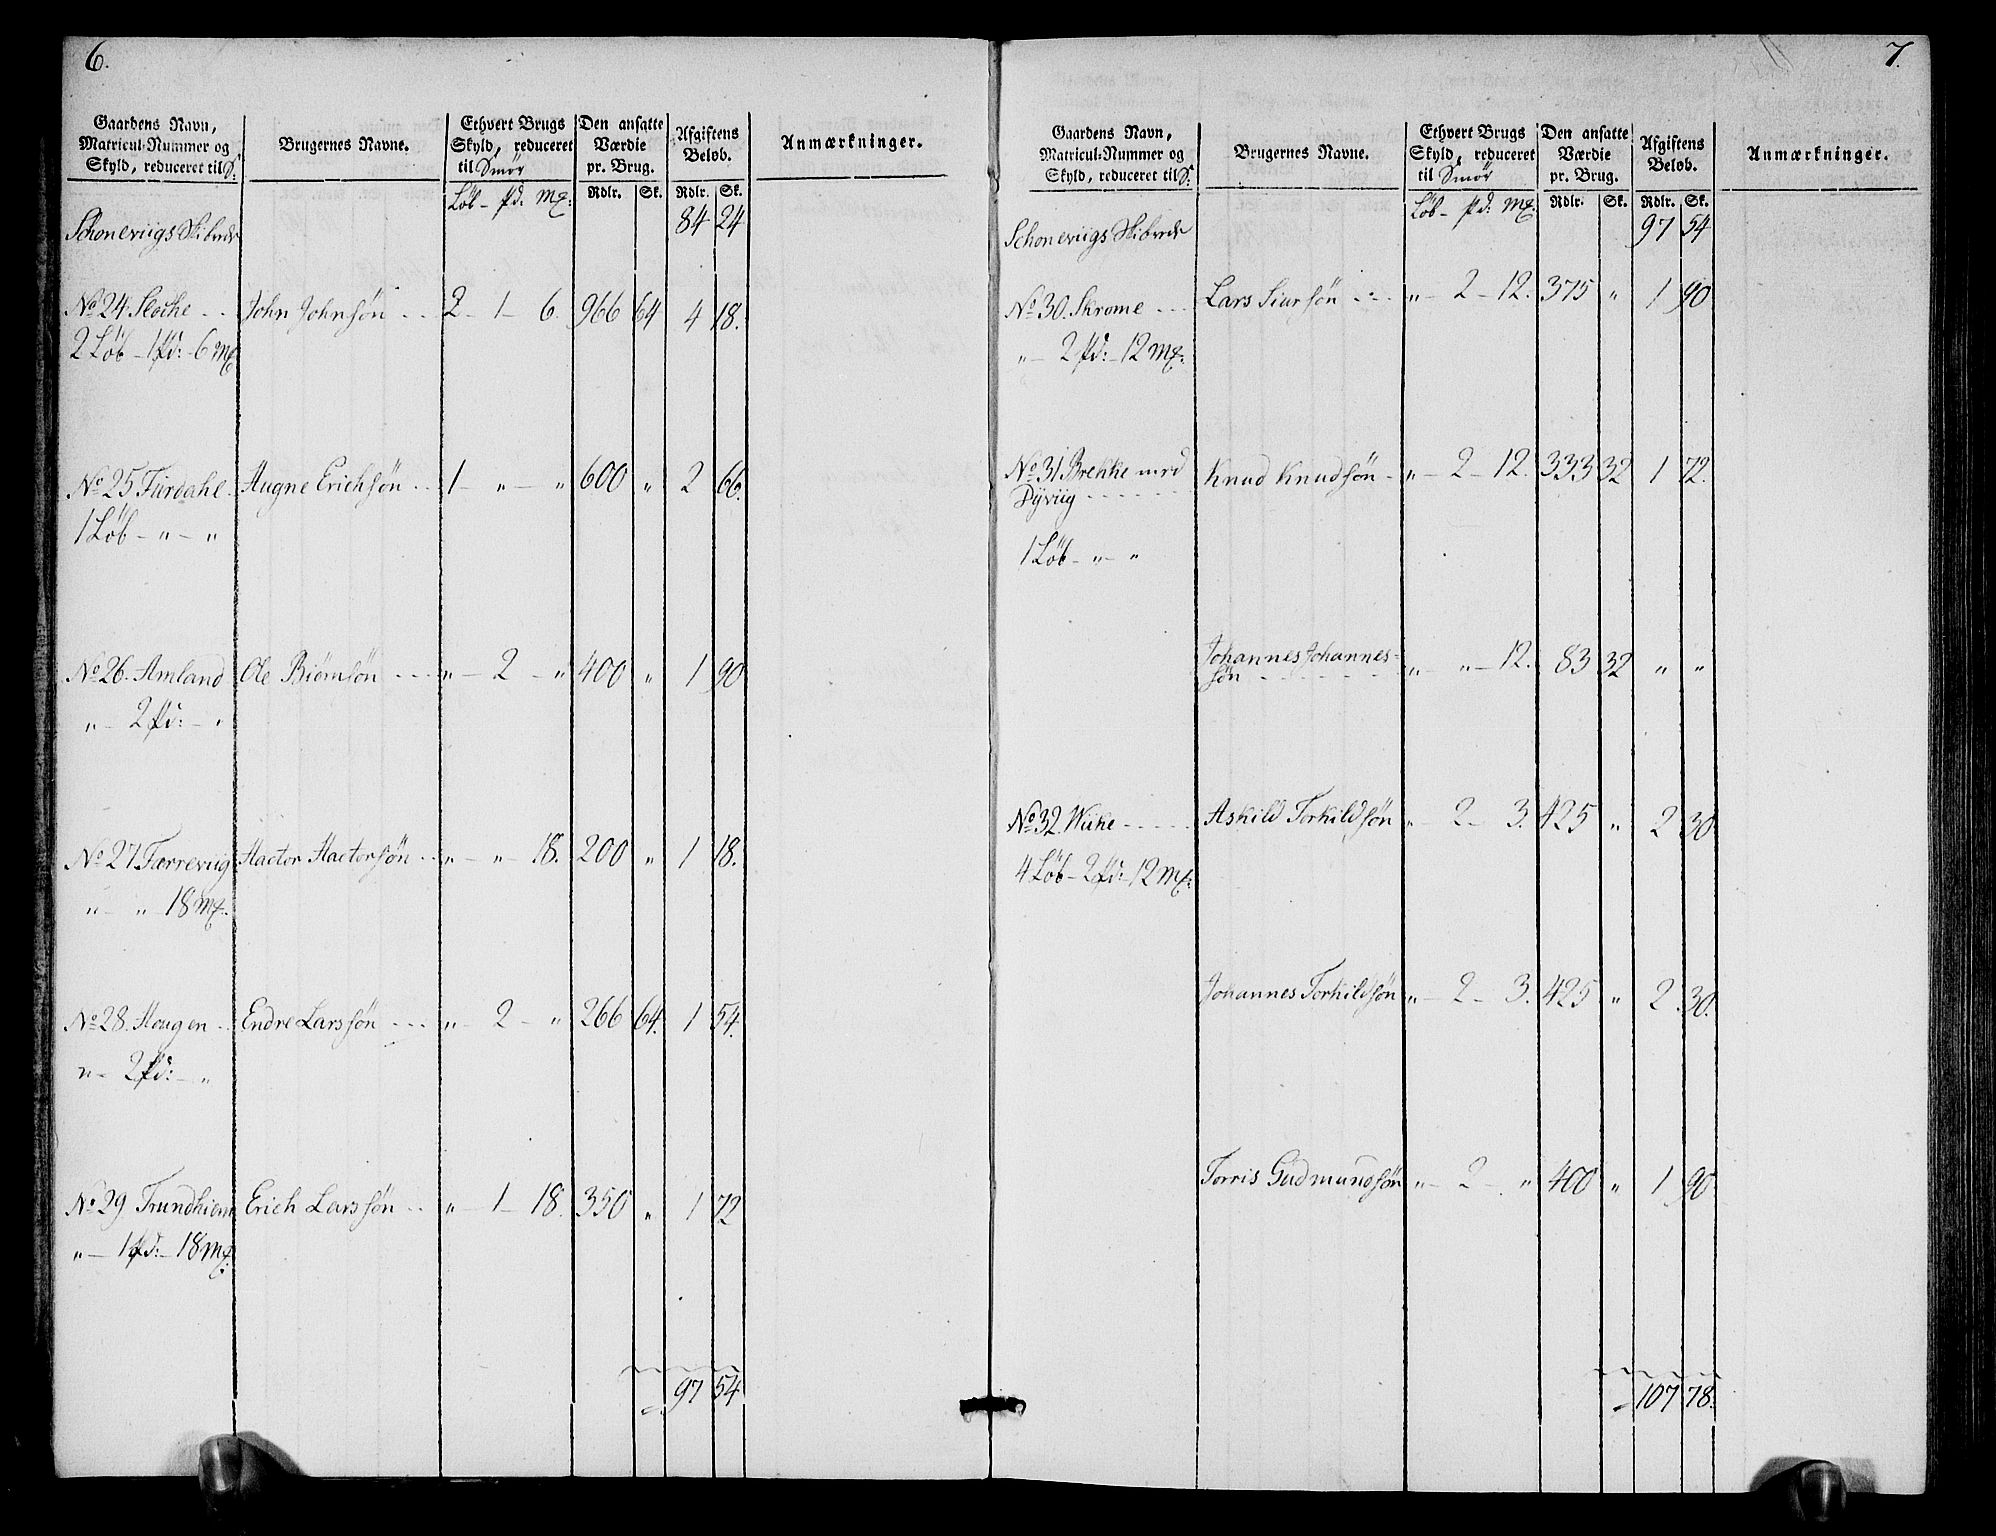 6.
Gaardens Navn, Matricul-Nummer og Skyld, reduceret til S: | Brugernes Navne. | Ethvert Brugs Skyld, reduceret til Smör | Den ansatte Værdie pr. Brug. | Afgiftens Beløb. | Anmærkninger.
Løb - Pd: Mk: | Rdlr. | Sk. | Rdlr. | Sk.
Schoneviigs Skibrede 84 24
No 24. Stöcke - - John Johnsøn - - 2 - 1 - 6. 966 64 4 18.
2 Løb - 1 Pd: - 6 Mk
No 25 Fürdahl - Augne Erichsøn - - 1 - " - " 600 " 2 66.
1 Løb - " - "
No 26. Amland Ole Biørnsøn - - - " - 2 - " 400 " 1 90
" - 2 Pd: - "
No 27. Færreviig Hactor Hactorsøn - - " - " - 18. 200 " 1 18.
" - " 18 Mk:
No 28. Hougen - - Endre Larssøn - - - " - 2 - " 266 64. 1 54.
" - 2 Pd: - "
No 29 Trundhiem Erich Larssøn - - " - 1 - 18. 350 " 1 72
" - 1 Pd: - 18 Mk:
97 54
7.
Gaardens Navn, Matricul-Nummer og Skyld, reduceret til S: | Brugernes Navne. | Ethvert Brugs Skyld, reduceret til Smör | Den ansatte Værdie pr. Brug. | Afgiftens Beløb. | Anmærkninger.
Løb - Pd: Mk: | Rdlr. | Sk. | Rdlr. | Sk.
Schoneviigs Skibrede 97 54
No 30. Skrome - - - Lars Siursøn - - - " - 2 - 12. 375 " 1 90
" - 2 Pd: - 12 Mk:
No 31 Brekke med Knud Knudsøn - " - 2 - 12. 333 32 1 72.
Dÿviig - - - - - -
1 Løb - " - "
Johannes Johannes=
søn - - - - - - " - " - 12. 83 32 " "
No 32. Wiike - - - - Askild Torkildsøn " - 2 - 3. 425 " 2 30
4 Løb - 2 Pd: - 12 Mk:
Johannes Torkildsøn " - 2 - 3. 425 " 2. 30.
Torris Gudmundsøn " - 2 - " 400 " 1 90
107 78.